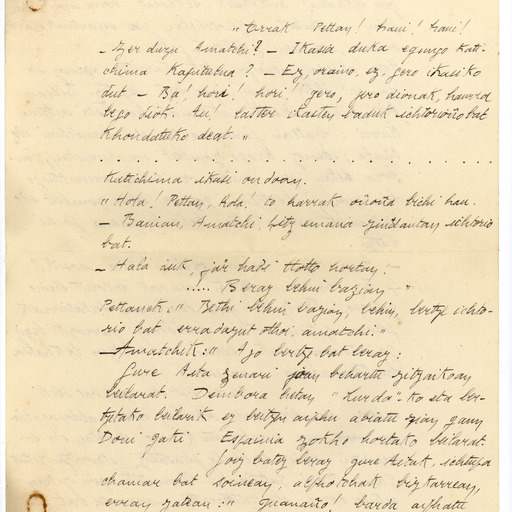 "Errak Pettan! hani! hani!
- Zer duzu, Amatchi? - Ikasia duka egungo Kati-
chima Kapitulua? - Ez, oraino, ez. gero ikasiko
dut - Ba! hori! hori! gero, gero dionak, haurra
bego diok. Au! laster ikasten baduk ichtorioño bat
khondatuko deat."
. . . . . . . . . . . . . . . . . . . .
Katichima ikasi ondoan.
"Hola! Pettan, hola! to harrak oiñoiña bichi hau.
- Banian, Amatchi, hitz emana zindautan ichtorio
bat.
- Hala duk, jar hadi Hotto hortan.
..... Beraz behin bazian "
Pettanek: " Bethi behin bazian, behin, bertze ichto-
rio bat erradazut othoi, amatchi."
- Amatchik: " Ago bertze bat beraz:
Gure Aita zenari joan behartu zitzaikoan
beilarat. Dembora hetan
ko eta ber-
tzetako beilarik ez baitzen aiphu abiatu zian gaun
Doni
Espainia zokho hortako beilarat.
Joiz batez beraz gure Aitak, ichtupa
chamar bat soinean, alphotchak bizkarrean,
erran zakan: "
barda aiphatu